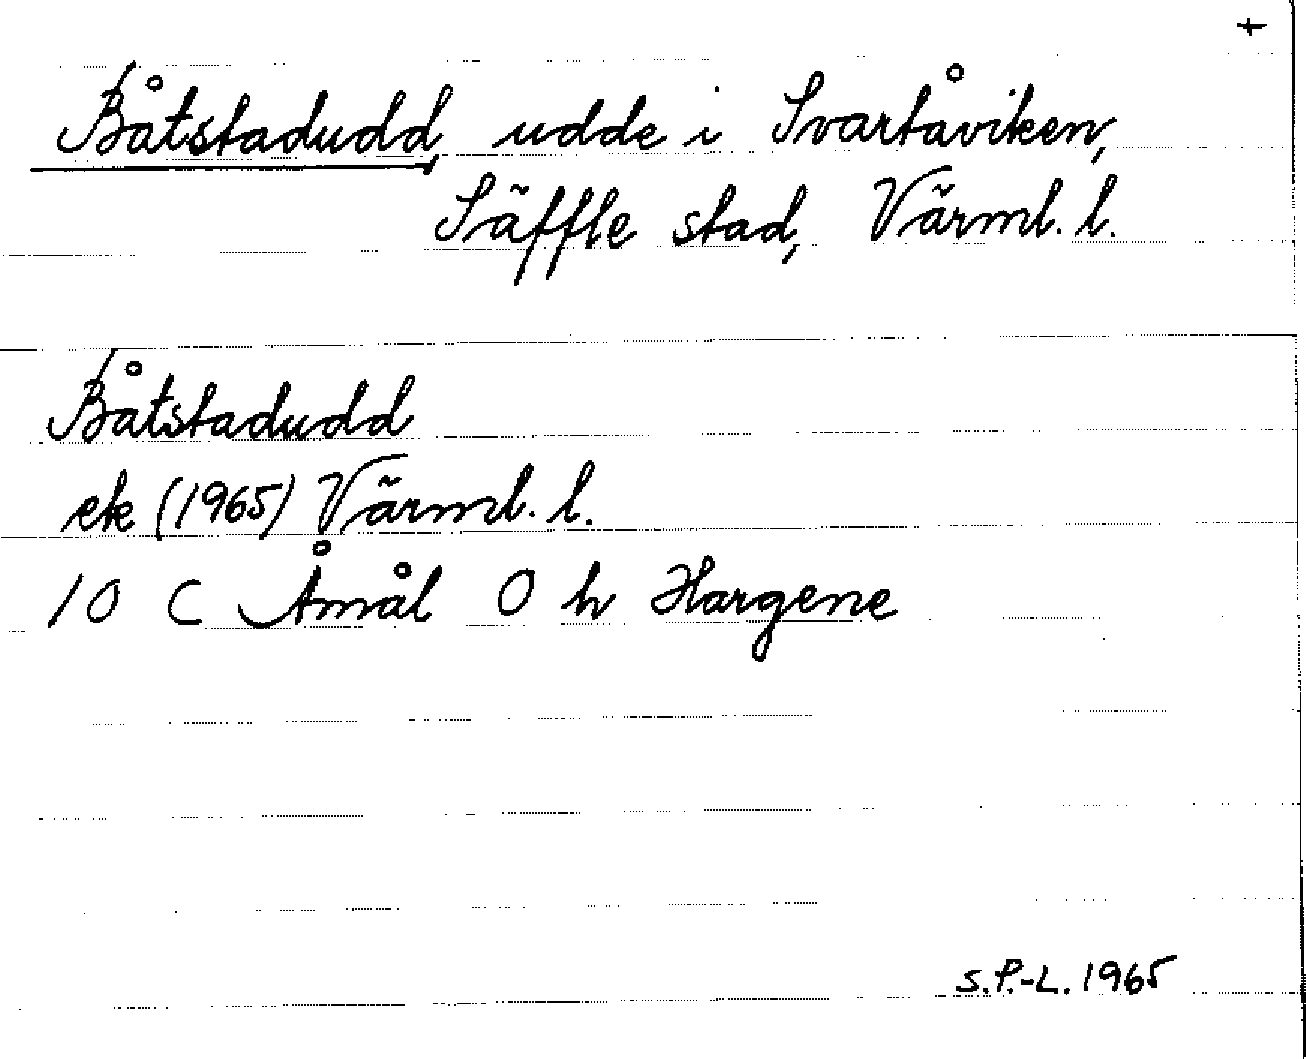 +
Båtstadudd, udde i Svartåviken,
Säffle stad, Värml. l.
Båtstadudd
ek (1965) Värml. l.
10 C Åmål O h Hargene
S.P.-L. 1965